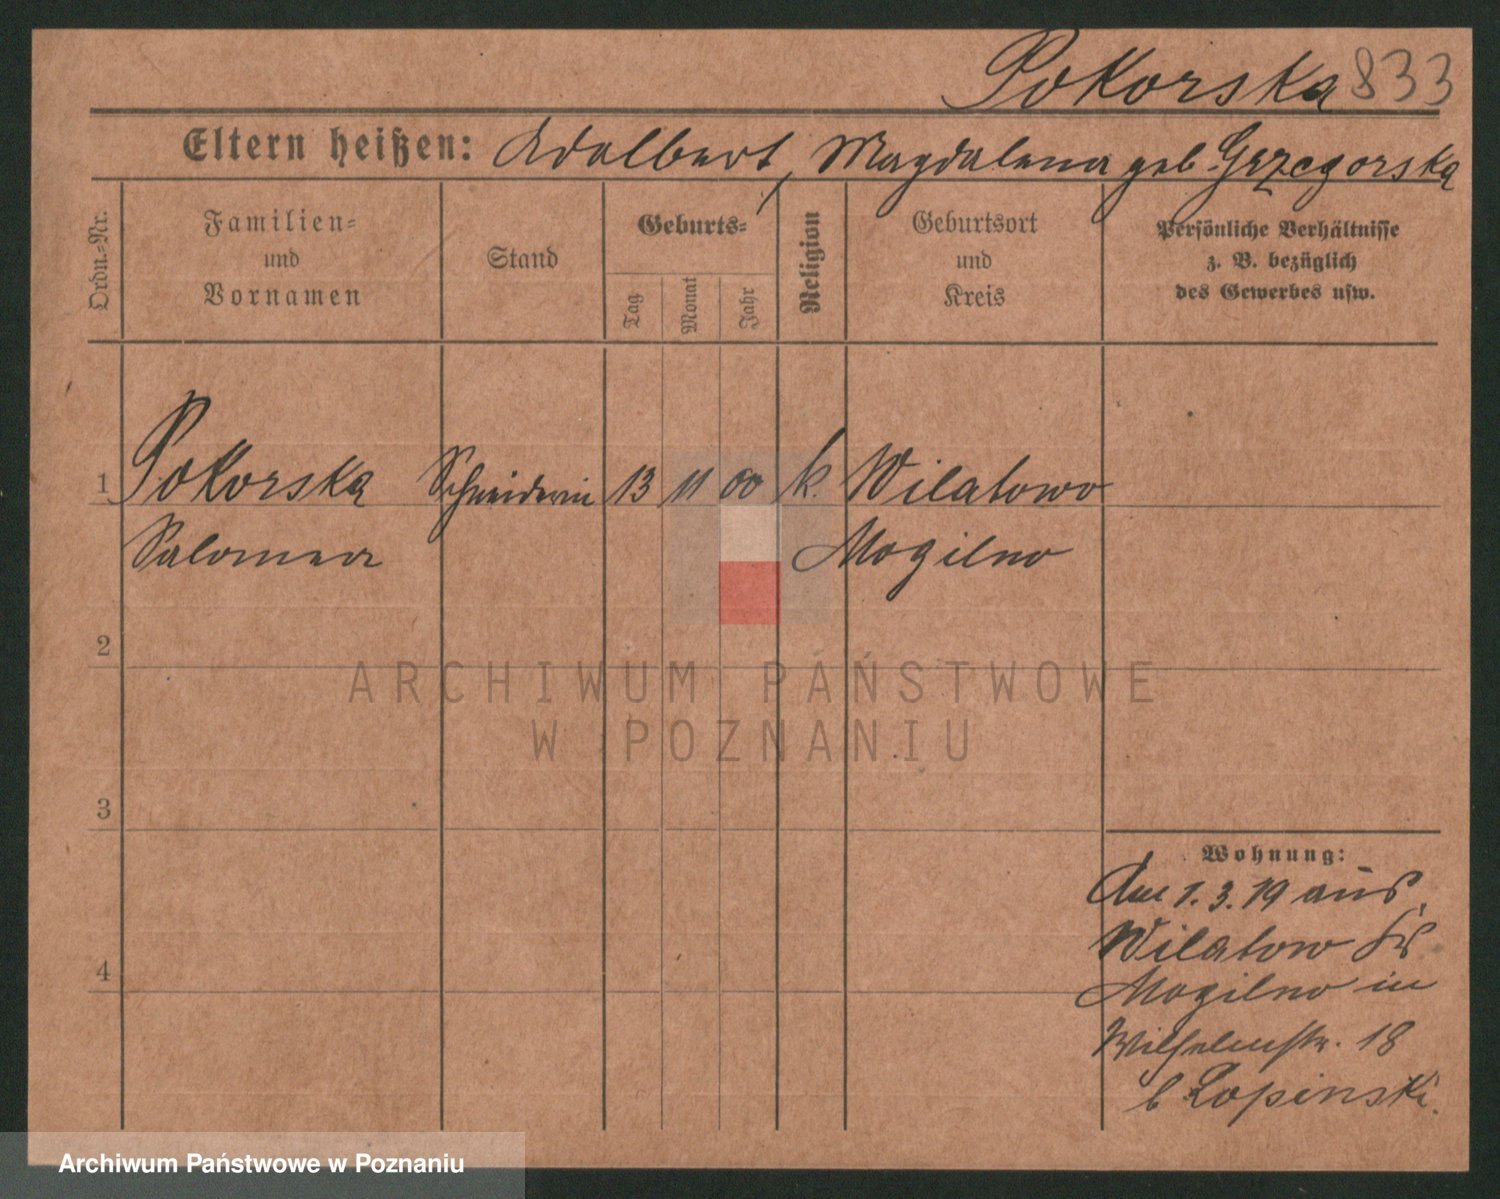 Pokorska 833
Eltern heißen: Adalbert, Magdalena geb Grzegorska
Ordn.-Nr.
Familien-
und
Vornamen
Stand
Geburts-
Tag
Monat
Jahr
Religion
Geburtsort
und
Kreis
Persönliche Verhältnisse
z. B. bezüglich
des Gewerbes usw.
1 Pokorska Schneiderin 13 11 00 k. Wilatowo
Salomea Mogilno
2
3
4
Wohnung:
Am 1.3.19 aus
Wilatow Krs
Mogilno in
Wilhelmstr. 18
b Lopinski.
ARCHIWUM PAŃSTWOWE
W POZNANIU
Archiwum Państwowe w Poznaniu